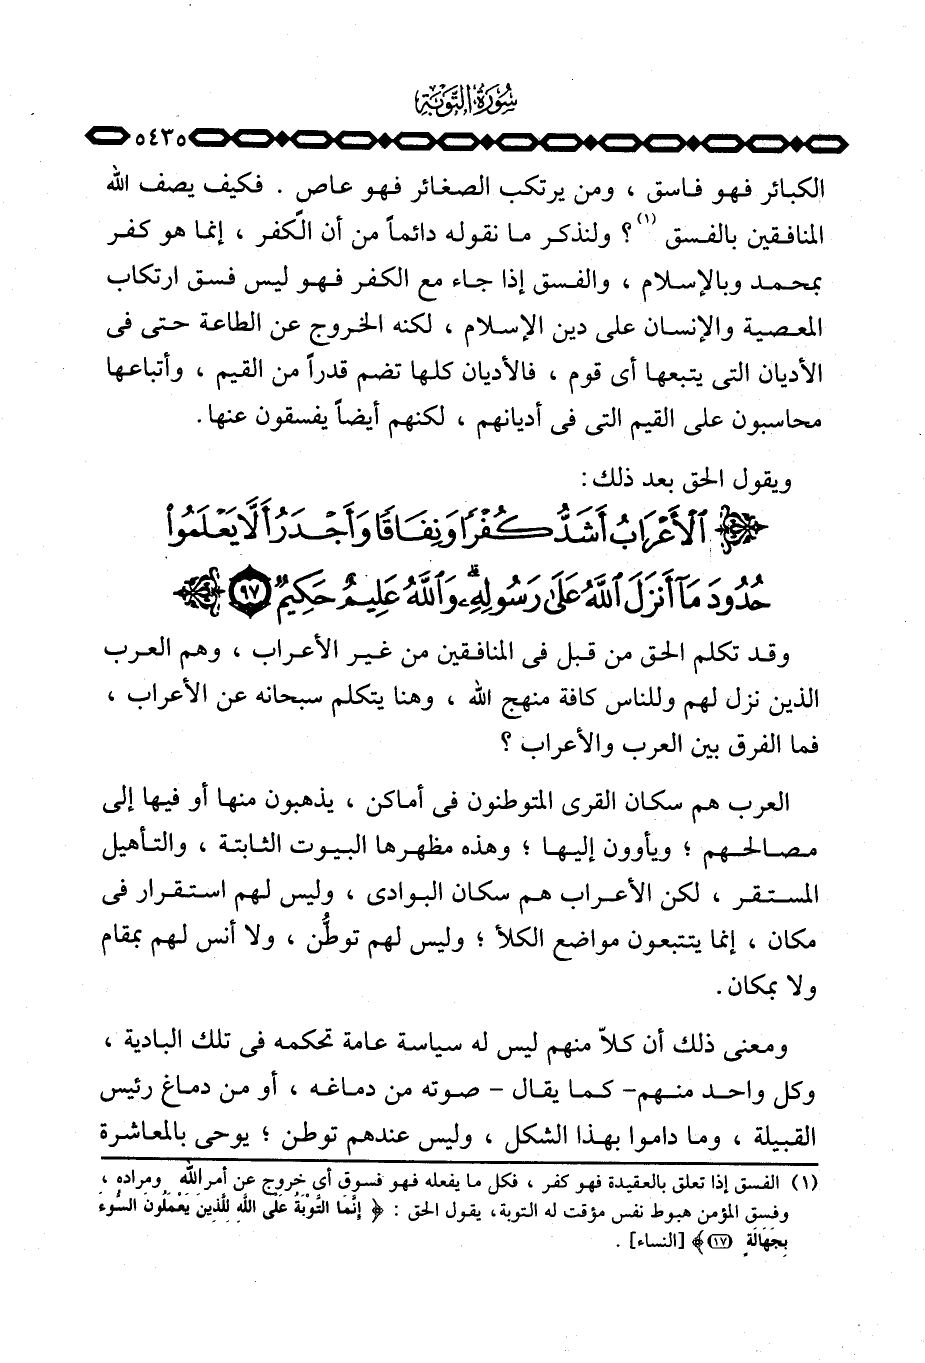 سُورَةُ التَّوْبَةِ
٥٤٣٥
الكبائر فهو فاسق ، ومن يرتكب الصغائر فهو عاصٍ . فكيف يصف الله
المنافقين بالفسق (١) ؟ ولنذكر ما نقوله دائماً من أن الكفر ، إنما هو كفر
بمحمد وبالإسلام ، والفسق إذا جاء مع الكفر فهو ليس فسق ارتكاب
المعصية والإنسان على دين الإسلام ، لكنه الخروج عن الطاعة حتى فى
الأديان التى يتبعها أى قوم ، فالأديان كلها تضم قدراً من القيم ، وأتباعها
محاسبون على القيم التى فى أديانهم ، لكنهم أيضاً يفسقون عنها.
ويقول الحق بعد ذلك:
ٱلْأَعْرَابُ أَشَدُّ كُفْرًا وَنِفَاقًا وَأَجْدَرُ أَلَّا يَعْلَمُوا۟
حُدُودَ مَآ أَنزَلَ ٱللَّهُ عَلَىٰ رَسُولِهِۦ ۗ وَٱللَّهُ عَلِيمٌ حَكِيمٌ ٩٧
وقد تكلم الحق من قبل فى المنافقين من غير الأعراب ، وهم العرب
الذين نزل لهم وللناس كافة منهج الله ، وهنا يتكلم سبحانه عن الأعراب ،
فما الفرق بين العرب والأعراب ؟
العرب هم سكان القرى المتوطنون فى أماكن ، يذهبون منها أو فيها إلى
مصالحهم ؛ ويأوون إليها ؛ وهذه مظهرها البيوت الثابتة ، والتأهيل
المستقر ، لكن الأعراب هم سكان البوادى ، وليس لهم استقرار فى
مكان ، إنما يتتبعون مواضع الكلأ ؛ وليس لهم توطُّن ، ولا أنس لهم بمقام
ولا بمكان.
ومعنى ذلك أن كلاّ منهم ليس له سياسة عامة تحكمه فى تلك البادية ،
وكل واحد منهم- كما يقال - صوته من دماغه ، أو من دماغ رئيس
القبيلة ، وما داموا بهذا الشكل ، وليس عندهم توطن ؛ يوحى بالمعاشرة
(١) الفسق إذا تعلق بالعقيدة فهو كفر ، فكل ما يفعله فهو فسوق أى خروج عن أمر الله ومراده ،
وفسق المؤمن هبوط نفس مؤقت له التوبة، يقول الحق : ﴿ إِنَّمَا التَّوْبَةُ عَلَى اللَّهِ لِلَّذِينَ يَعْمَلُونَ السُّوءَ
بِجَهَالَةٍ (١٧)﴾ [النساء] .